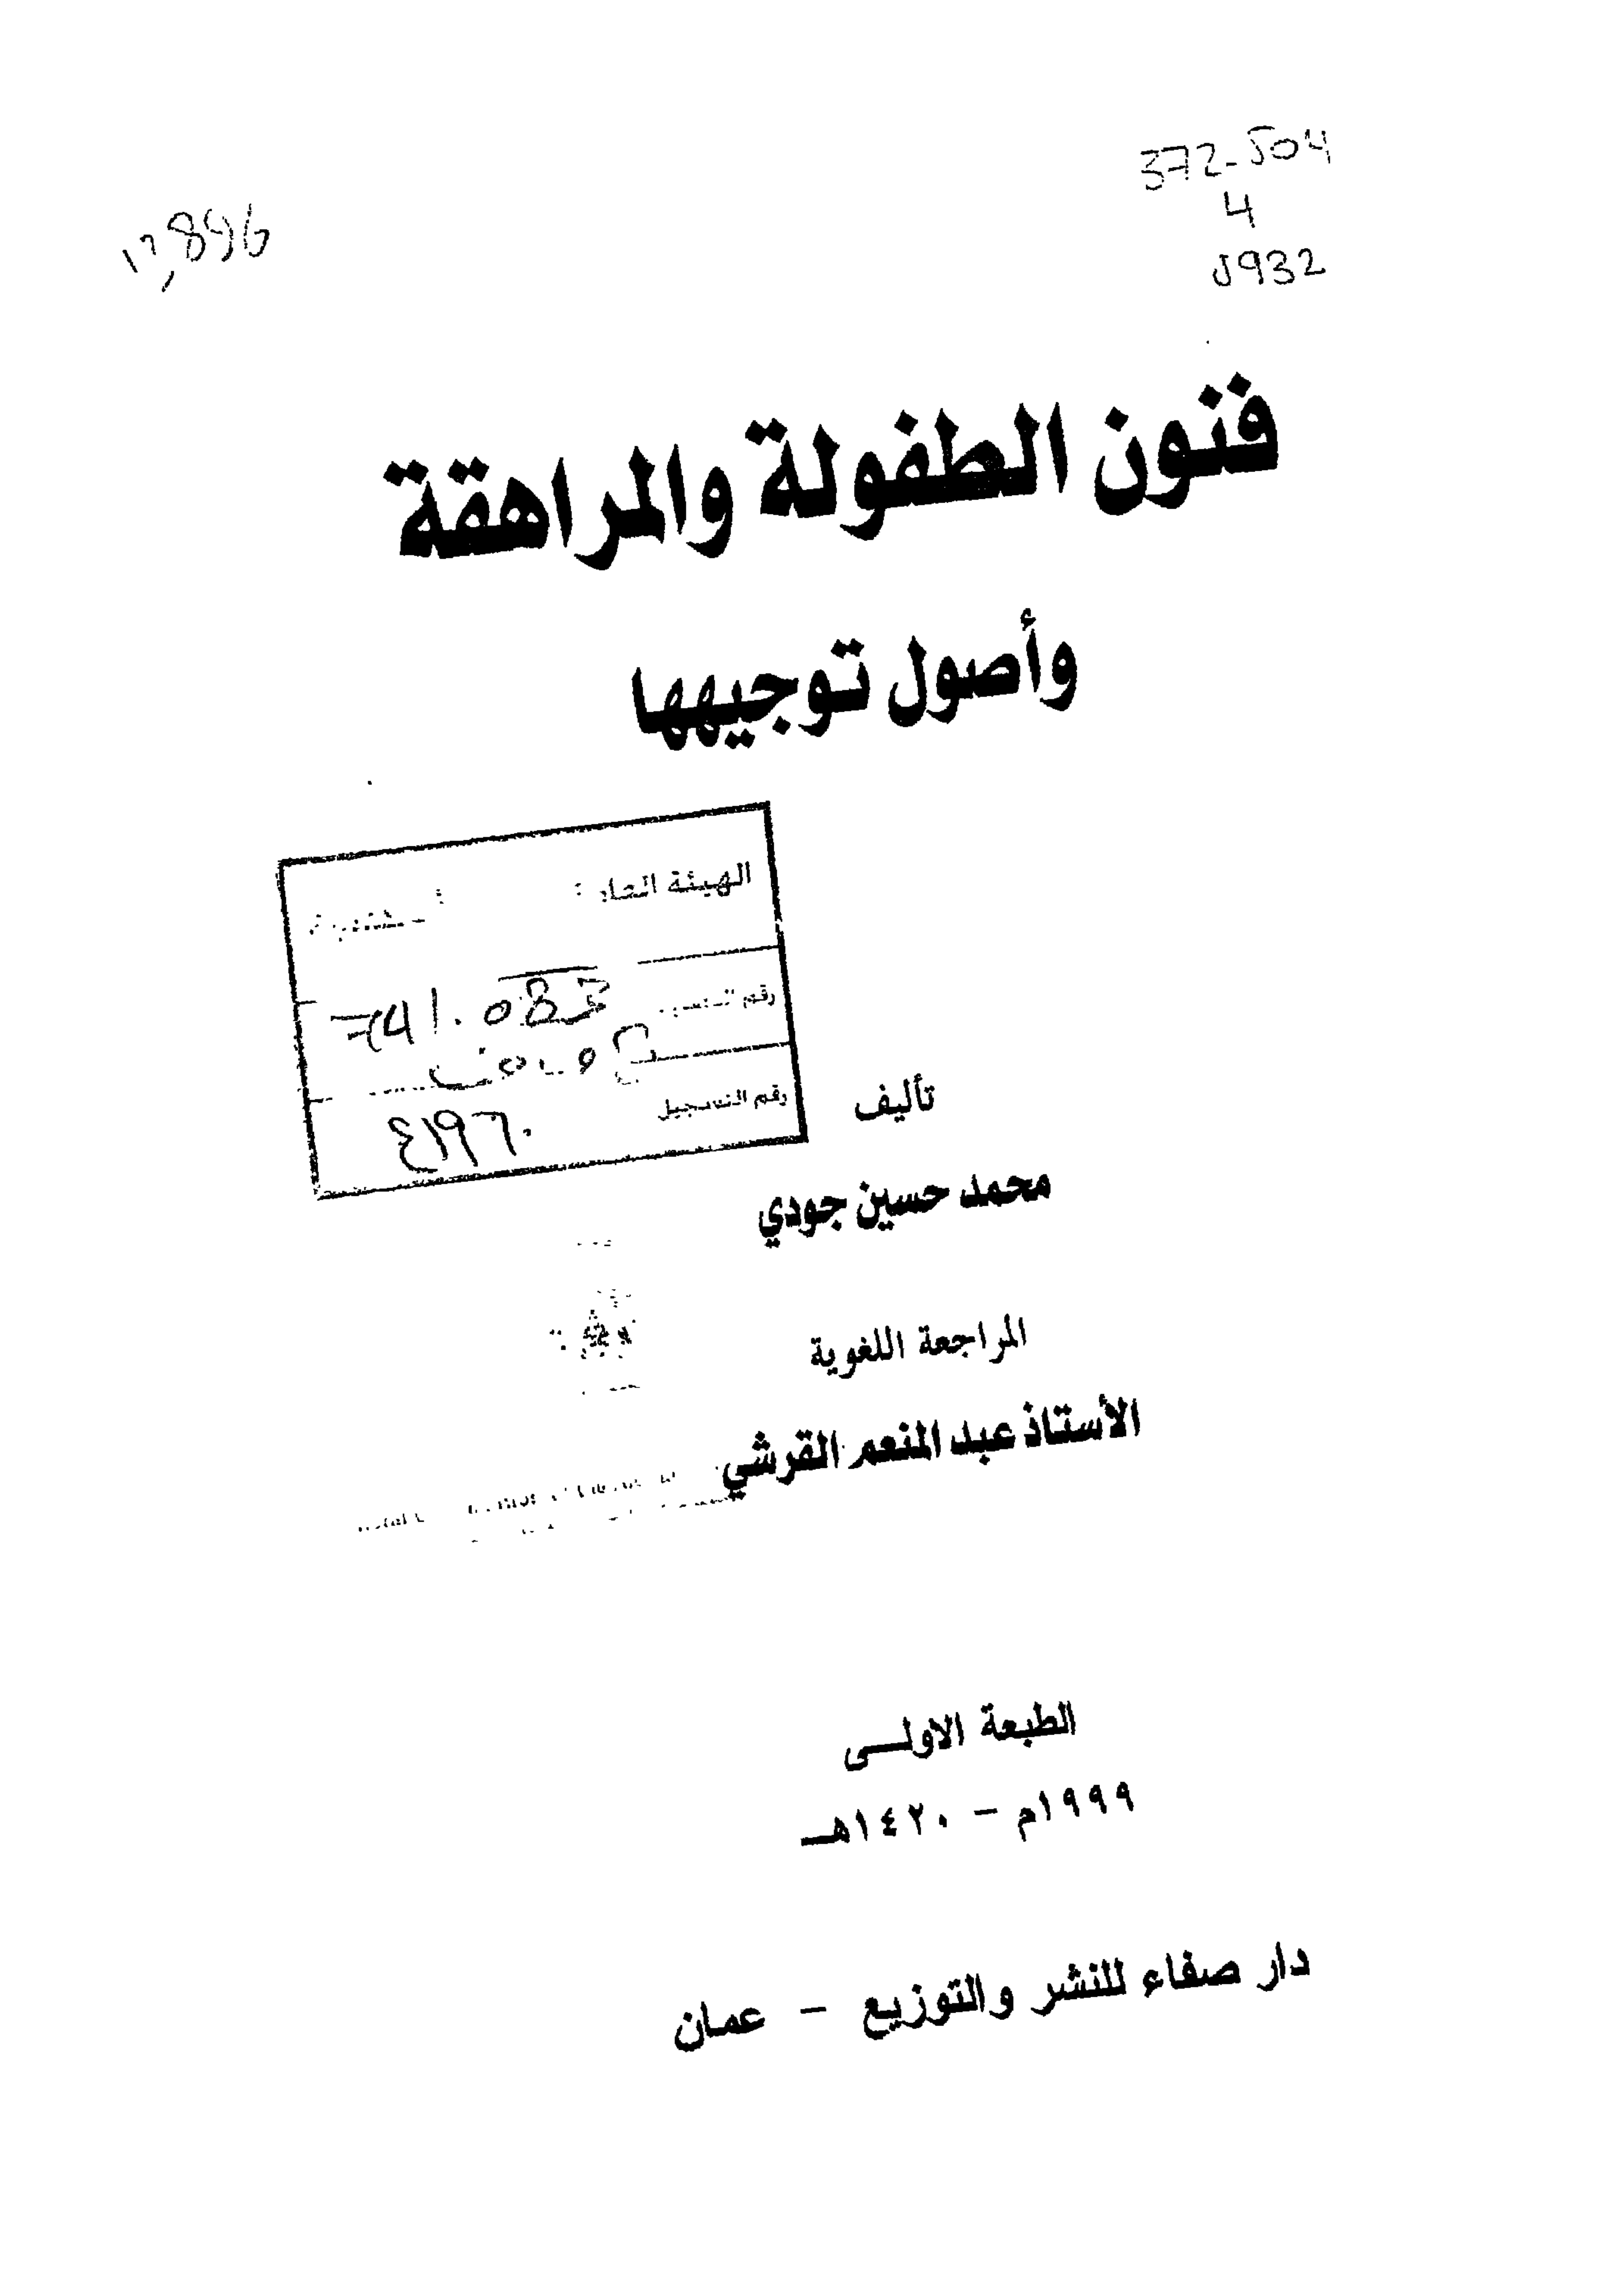 372.504
4
J932
فنون الطفولة والمراهقة
وأصول توجيهها
الهيئة
رقم
741.083
رقم التسجيل
٤١٩٦٠
تأليف
محمد حسين جودي
المراجعة اللغوية
الأستاذ عبد المنعم القرشي
الطبعة الاولى
١٩٩٩م - ١٤٢٠هـ
دار صفاء للنشر والتوزيع - عمان